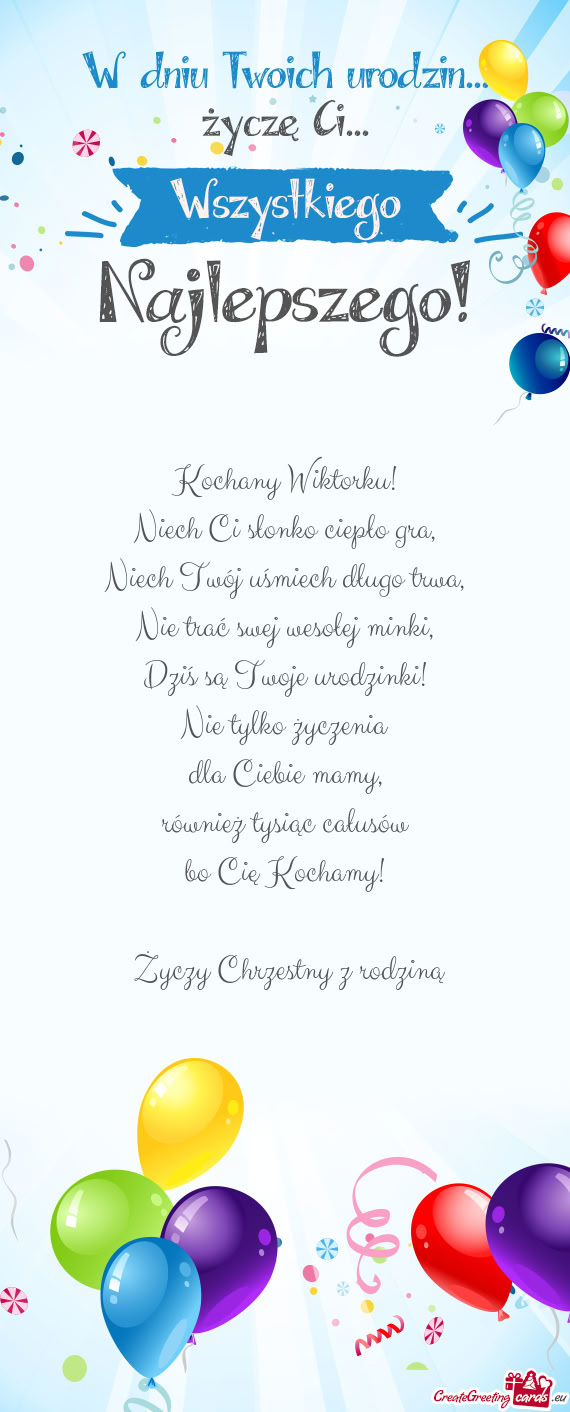 W dniu Twoich urodzin...
życzę Ci...
Wszystkiego
Najlepszego!
Kochany Wiktorku!
Niech Ci słonko ciepło gra,
Niech Twój uśmiech długo trwa,
Nie trać swej wesołej minki,
Dziś są Twoje urodzinki!
Nie tylko życzenia
dla Ciebie mamy,
również tysiąc całusów
bo Cię Kochamy!
Życzy Chrzestny z rodziną
CreateGreeting cards .eu